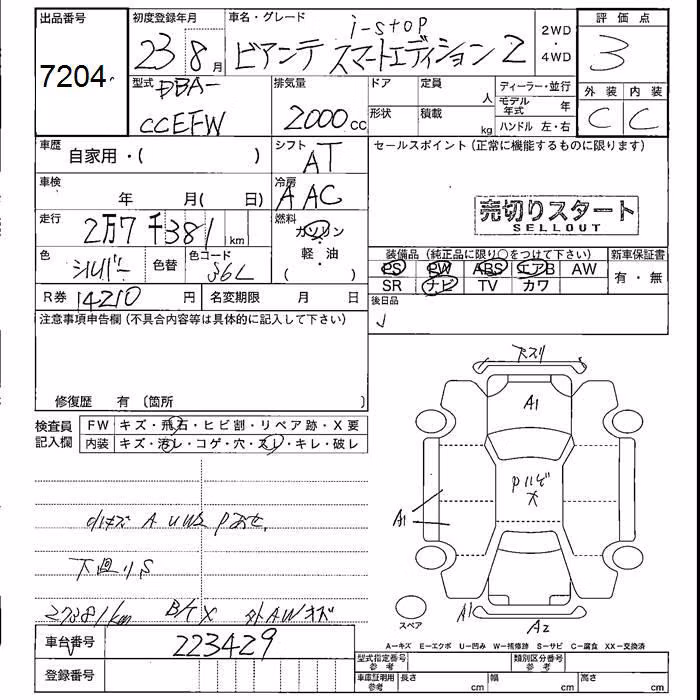 出品番号
7204
初度登録年月
23 8月
車名・グレード
i-stop
ビアンテ スマートエディション2
2WD
・
4WD
評価点
3
外装 内装
C C
型式
DBA-
CCEFW
排気量
2000cc
ドア
定員
人
形状
積載
kg
ディーラー・並行
モデル年式
年
ハンドル 左・右
車歴
自家用・( )
シフト
AT
セールスポイント(正常に機能するものに限ります)
車検
年 月( 日)
冷房
AAC
売切りスタート
SELLOUT
走行
2万7千381km
燃料
ガソリン
・
軽・油
( )
色
シルバー
色替
色コード
36L
装備品(純正品に限り○をつけて下さい)
新車保証書
PS PW ABS エアB AW
有・無
SR ナビ TV カワ
R券
14210円
名変期限 月 日
後日品
注意事項申告欄(不具合内容等は具体的に記入して下さい)
修復歴 有 〔箇所 〕
検査員
記入欄
FW キズ・飛石・ヒビ割・リペア跡・X要
内装 キズ・汚レ・コゲ・穴・スレ・キレ・破レ
小キズ A U W2
下廻りS
27381km
外AWキズ
車台番号
223429
登録番号
A1
A1
A1
A2
スペア
A-キズ E-エクボ U-凹み W-補修跡 S-サビ C-腐食 XX-交換済
型式指定番号
参考
類別区分番号
参考
車庫証明用
参考
長さ cm 幅 cm 高さ cm